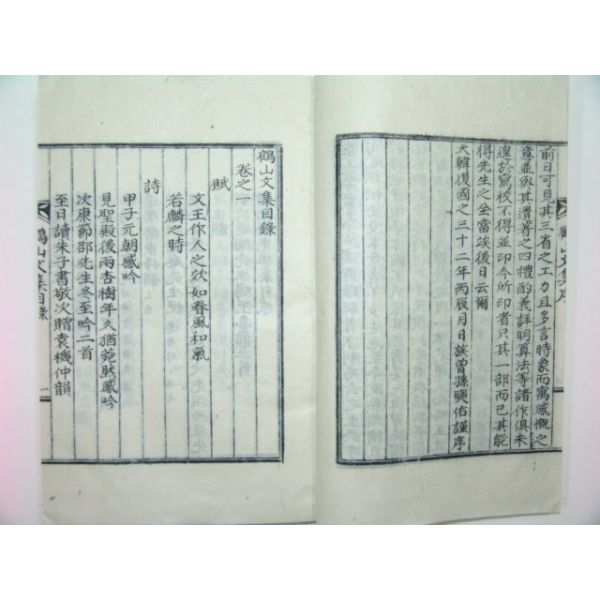 鶴山文集序
前日可見其三省之工力且多言時象而寓感慨之
意並與其遺著之四禮酌義詳明算法等諸作俱未
遑於寫校不得並印今所印者只其一部而已其能
得先生之全當竢後日云爾
大韓復國之三十二年丙辰月日族曾孫 佑謹序
鶴山文集目錄
卷之一
賦
文王作人之效如春風和氣
若麟之時
詩
甲子元朝感吟
見聖殿後兩杏樹年久猶菀然感吟
次康節邵先生冬至吟二首
至日讀朱子書敬次贈袁機仲韻
鶴山文集目錄
一